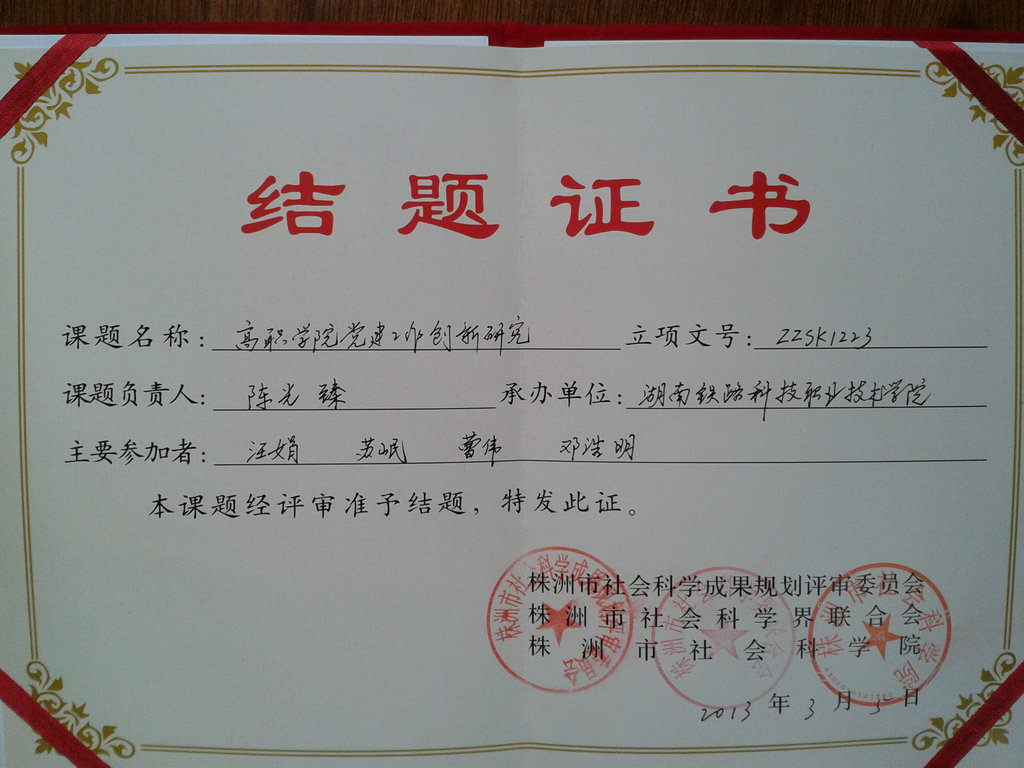 结题证书
课题名称：高职学院党建工作创新研究 立项文号：ZZSK1223
课题负责人：陈光臻 承办单位：湖南铁路科技职业技术学院
主要参加者：汪娟 苏岷 曹伟 邓浩明
本课题经评审准予结题，特发此证。
株洲市社会科学成果规划评审委员会
株洲市社会科学界联合会
株洲市社会科学院
2013年3月5日
株洲市社会科学成果规划评审委员会
株洲市社会科学院